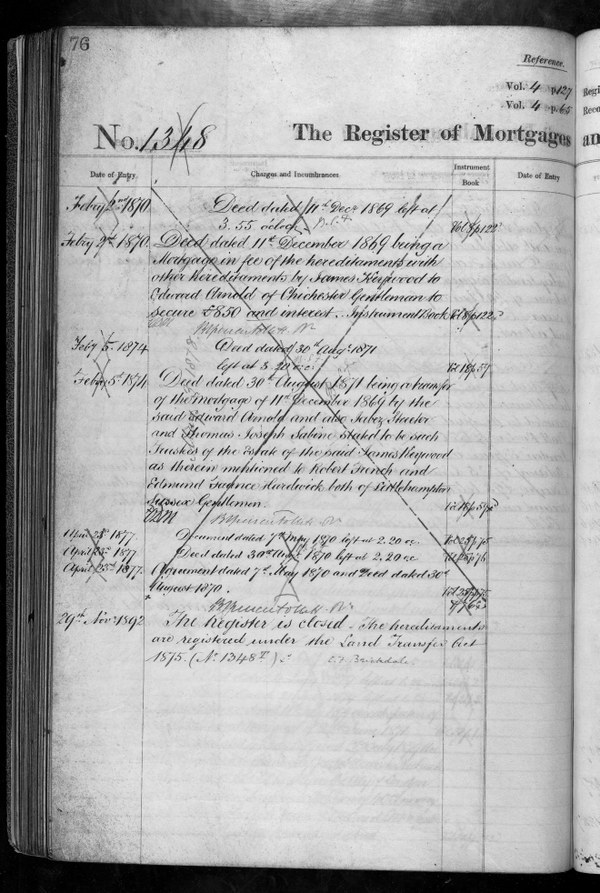 76
Reference.
Vol. 4 p.127
Vol. 4 p.65
No. 1348 The Register of Mortgages
Date of Entry. Charges and Incumbrances Instrument Book Date of Entry
Feby 2nd 1870 Deed dated 11th Decr 1869 left at
3.55 o'clock Vol 8 p 122
Feby 9th 1870. Deed dated 11th December 1869 being a
Mortgage in fee of the hereditaments with
other hereditaments by James Heywood to
Edward Arnold of Chichester Gentleman to
secure £850 and interest. Instrument Book Vol 8 p 122
Feby 5 1874 Deed dated 30th Augt 1871
left at 3.20 oc: Vol 18 p 57
Feby 5th 1874 Deed dated 30th August 1871 being a transfer
of the mortgage of 11th December 1869 by the
said Edward Arnold and also Jabez
and Thomas Joseph Sabine stated to be such
Trustees of the Estate of the said James Heywood
as therein mentioned to Robert French and
Edmund Hardwick both of Littlehampton
Sussex Gentlemen Vol 18 p 57
April 23rd 1877. Document dated 7th May 1870 left at 2.20 oc
April 23rd 1877 Deed dated 30th Augt 1870 left at 2.20 oc
April 23rd 1877. Document dated 7th May 1870 and Deed dated 30th
August 1870.
29th Novr 1892 The Register is closed. The hereditaments
are registered under the Land Transfer Act
1875. (No. 1348
Date of Entry